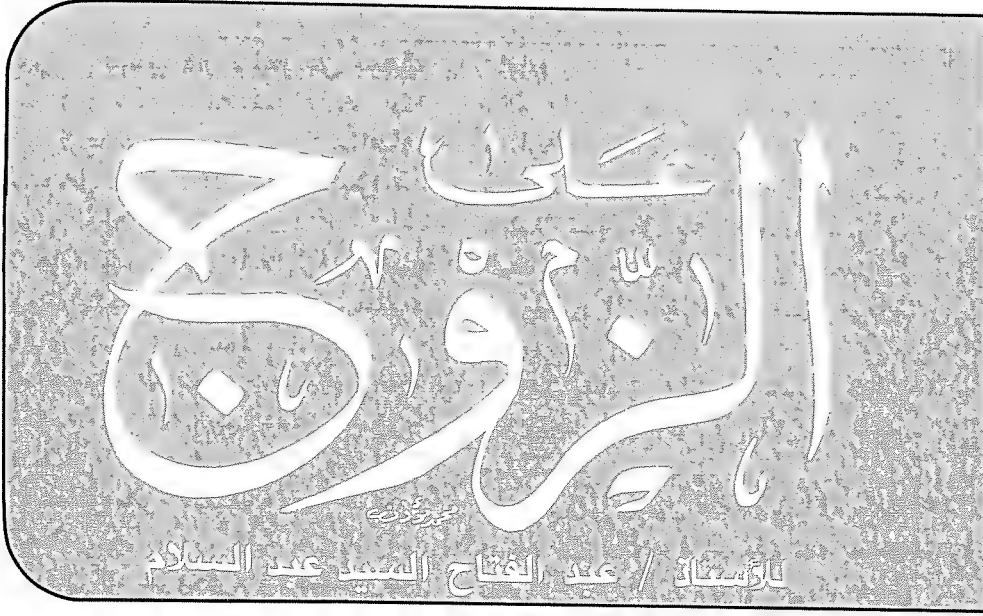 على
الزوج
للأستاذ / عبد الفتاح السيد عبد السلام